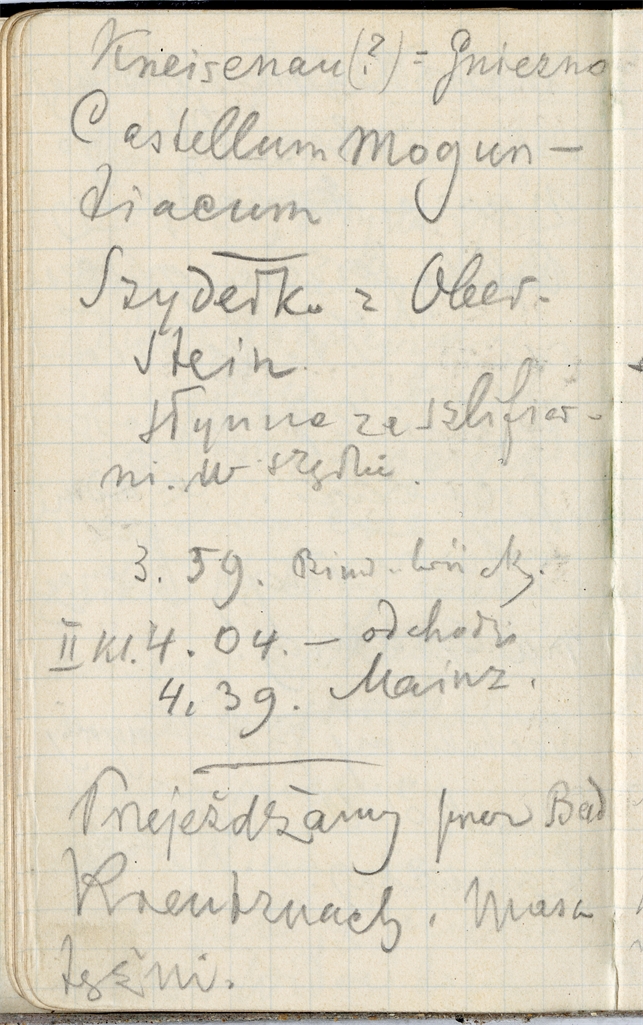 Kneisenau (?) = Gniezno
Castellum Mogun-
tiacum
Szydełko z Ober-
stein.
słynne ze szlifier-
ni. w
3. 59. Bingerbrück.
II kl. 4. 04. — odchodzi
4. 39. Mainz.
Przejeżdżamy przez Bad
Kreutznach. Masa
tężni.